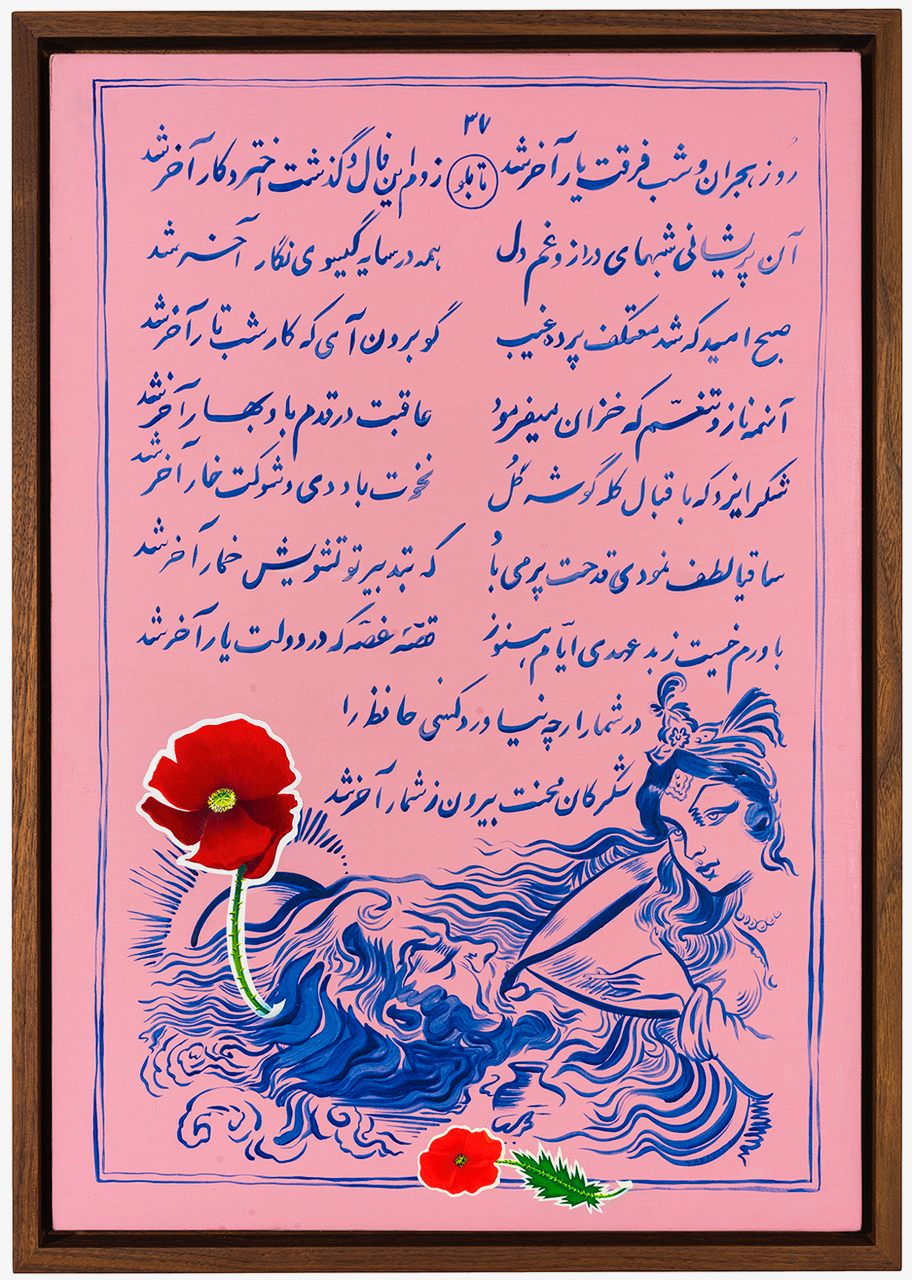 ۳۷
روز هجران و شب فرقت یار آخر شد تابلو زدم این فال و گذشت اختر و کار آخر شد
آن پریشانی شبهای دراز و غم دل همه در سایه گیسوی نگار آخر شد
صبح امید که شد معتکف پرده غیب گو برون آی که کار شب تار آخر شد
آنهمه ناز و تنعّم که خزان میفرمود عاقبت در قدم باد بهار آخر شد
شکر ایزد که باقبال کله گوشه گُل نخوت باد دی و شوکت خار آخر شد
ساقیا لطف نمودی قدحت پر می باد که بتدبیر تو تشویش خمار آخر شد
باورم نیست ز بدعهدی ایّام هنوز قصّه غصّه که در دولت یار آخر شد
در شمار ارچه نیاورد کسی حافظ را
شکر کان محنت بیرون ز شمار آخر شد